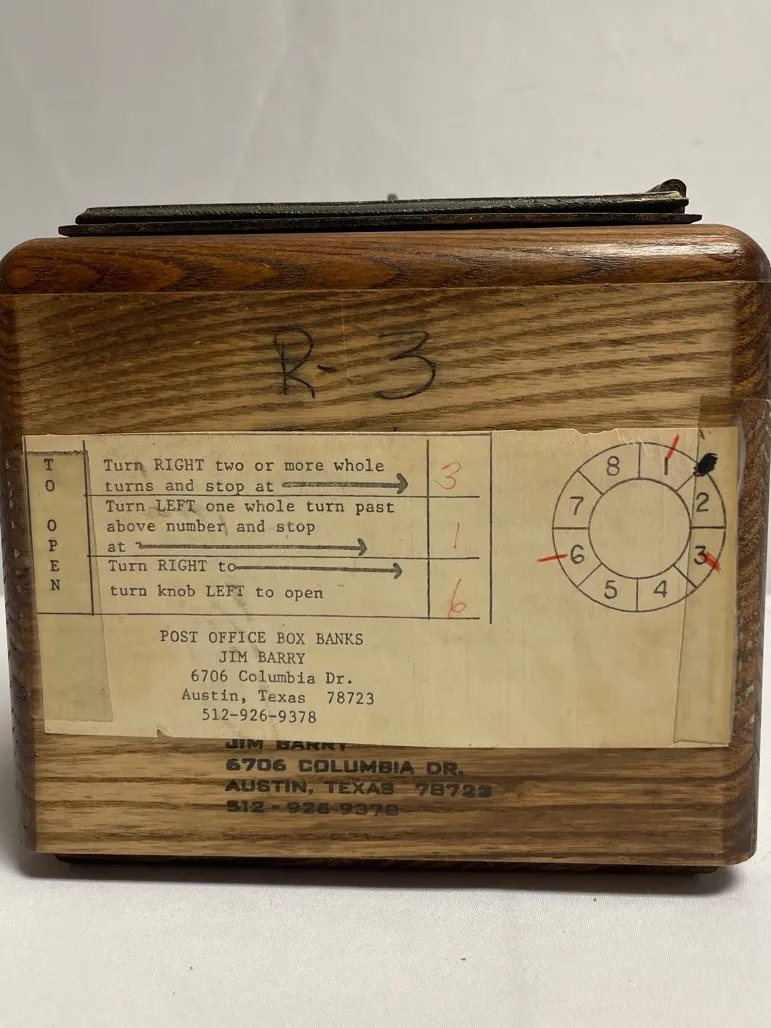 R-3
TO OPEN
Turn RIGHT two or more whole
turns and stop at 3
Turn LEFT one whole turn past
above number and stop
at 1
Turn RIGHT to
turn knob LEFT to open 6
8 1 2 3 4 5 6 7
POST OFFICE BOX BANKS
JIM BARRY
6706 Columbia Dr.
Austin, Texas 78723
512-926-9378
JIM BARRY
6706 COLUMBIA DR.
AUSTIN, TEXAS 78723
512-926-9378